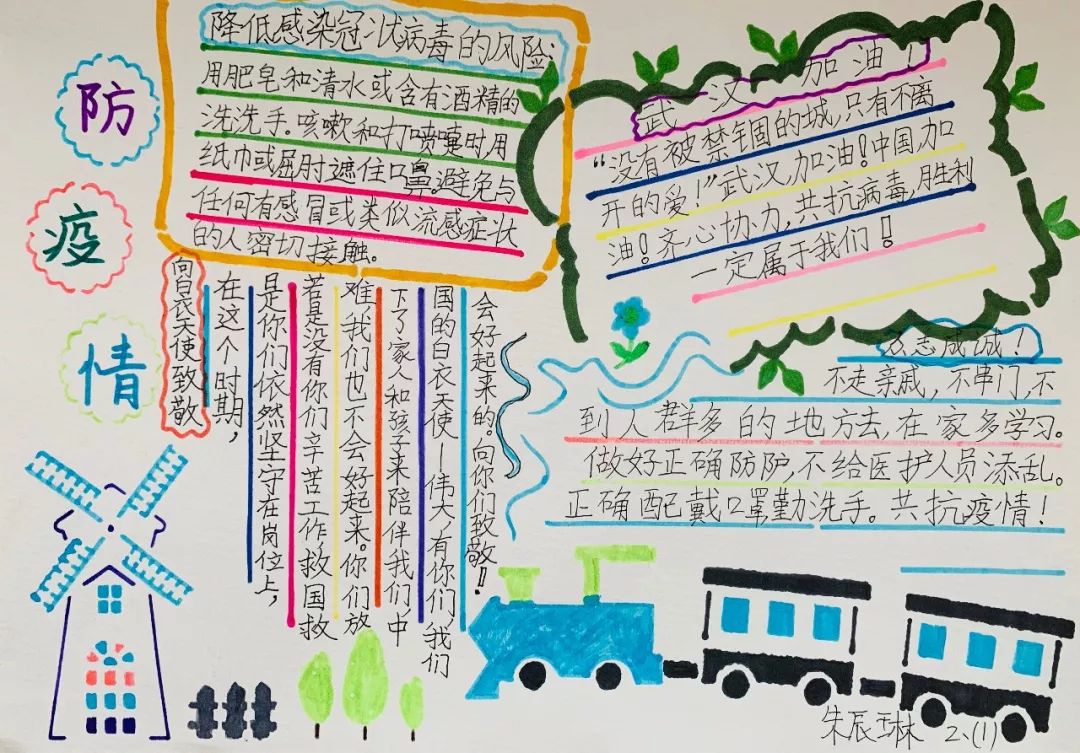 防
疫
情
降低感染冠状病毒的风险：
用肥皂和清水或含有酒精的
洗洗手。咳嗽和打喷嚏时用
纸巾或屈肘遮住口鼻。避免与
任何有感冒或类似流感症状
的人密切接触。
武汉加油！
“没有被禁锢的城，只有不离
开的爱！”武汉加油！中国加
油！齐心协力，共抗病毒，胜利
一定属于我们！
向白衣天使致敬
在这个时期，
是你们依然坚守在岗位上，
若是没有你们辛苦工作，救国救
难，我们也不会好起来。你们放
下了家人和孩子来陪伴我们，中
国的白衣天使—伟大，有你们，我们
会好起来的。向你们致敬！
志成诚！
不走亲戚，不串门，不
到人群多的地方去，在家多学习。
做好正确防护，不给医护人员添乱。
正确配戴口罩勤洗手。共抗疫情！
朱辰琳 2、(1)